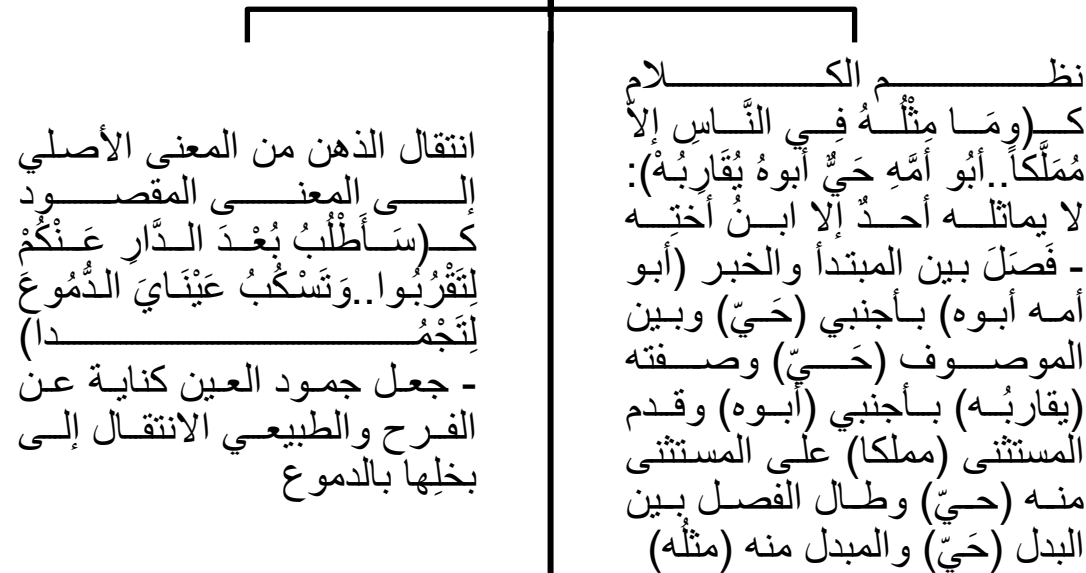 نظم الكلام
كـ(ومَا مِثْلُهُ فِي النَّاسِ إلاّ
مُمَلَّكاً..أبُو أمِّهِ حَيٌّ أبوهُ يُقَارِبُهْ):
لا يماثله أحدٌ إلا ابنُ أختِه
- فَصَلَ بين المبتدأ والخبر (أبو
أمه أبوه) بأجنبي (حَيّ) وبين
الموصوف (حَيّ) وصفته
(يقاربُه) بأجنبي (أبوه) وقدم
المستثنى (مملكا) على المستثنى
منه (حيّ) وطال الفصل بين
البدل (حَيّ) والمبدل منه (مثلُه)
انتقال الذهن من المعنى الأصلي
إلى المعنى المقصود
كـ(سَأَطْلُبُ بُعْدَ الدَّارِ عَنْكُمْ
لِتَقْرُبُوا..وَتَسْكُبُ عَيْنَايَ الدُّمُوعَ
لِتَجْمُدا)
- جعل جمود العين كناية عن
الفرح والطبيعي الانتقال إلى
بخلِها بالدموع